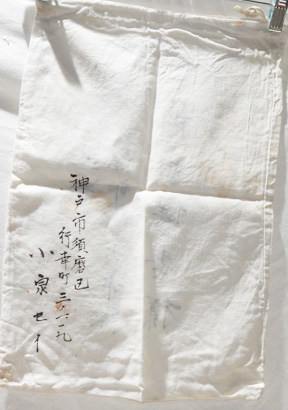 神戸市須磨区
行幸町三ノ一九
小泉セイ